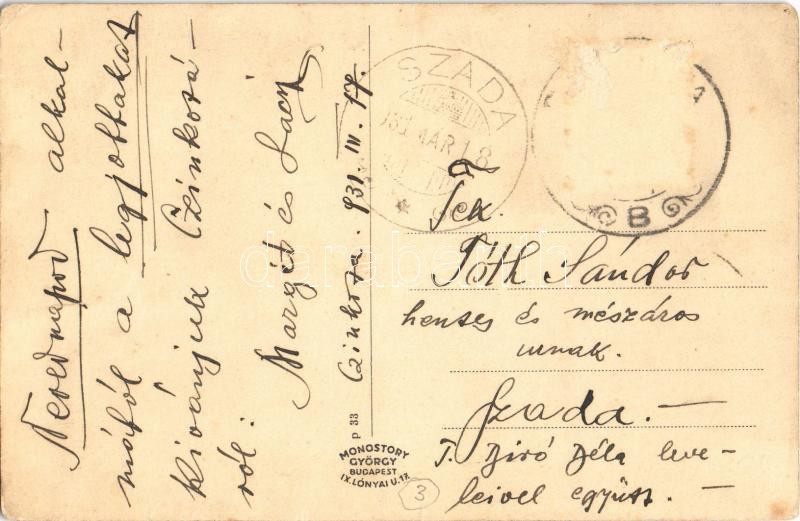 Nevednapod alkal-
mából a legjobbakat
kivánjuk Czinkotá-
ról.
Margit és Laci
Czinkota. 931. III. 17.
SZADA
931 MÁR 18
B
Tek.
Tóth Sándor
hentes és mészáros
urnak.
Szada.
T. Biró Béla leve-
leivel együtt.
P 33
MONOSTORY
GYÖRGY
BUDAPEST
IX. LÓNYAI U. 17.
3
darabanth